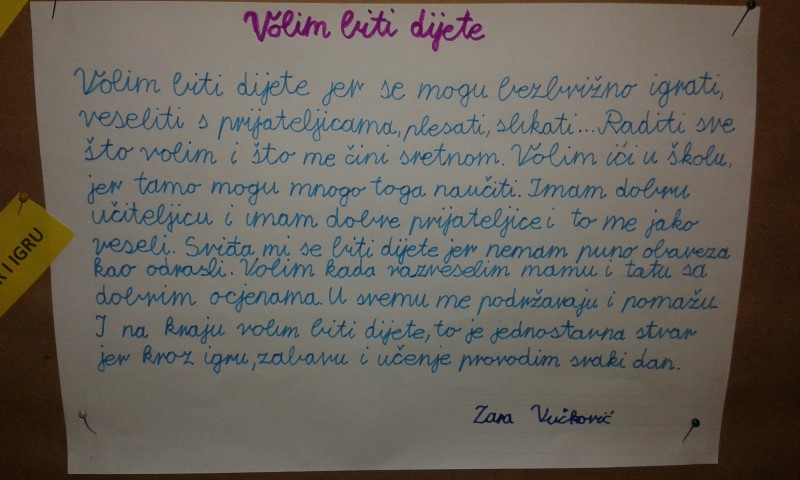 Volim biti dijete
Volim biti dijete jer se mogu bezbrižno igrati,
veseliti s prijateljicama, plesati, slikati... Raditi sve
što volim i što me čini sretnom. Volim ići u školu,
jer tamo mogu mnogo toga naučiti. Imam dobru
učiteljicu i imam dobre prijateljice i to me jako
veseli. Sviđa mi se biti dijete jer nemam puno obaveza
kao odrasli. Volim kada razveselim mamu i tatu sa
dobrim ocjenama. U svemu me podržavaju i pomažu
I na kraju volim biti dijete, to je jednostavna stvar
jer kroz igru, zabavu i učenje provodim svaki dan.
Zara Vučković
I IGRU